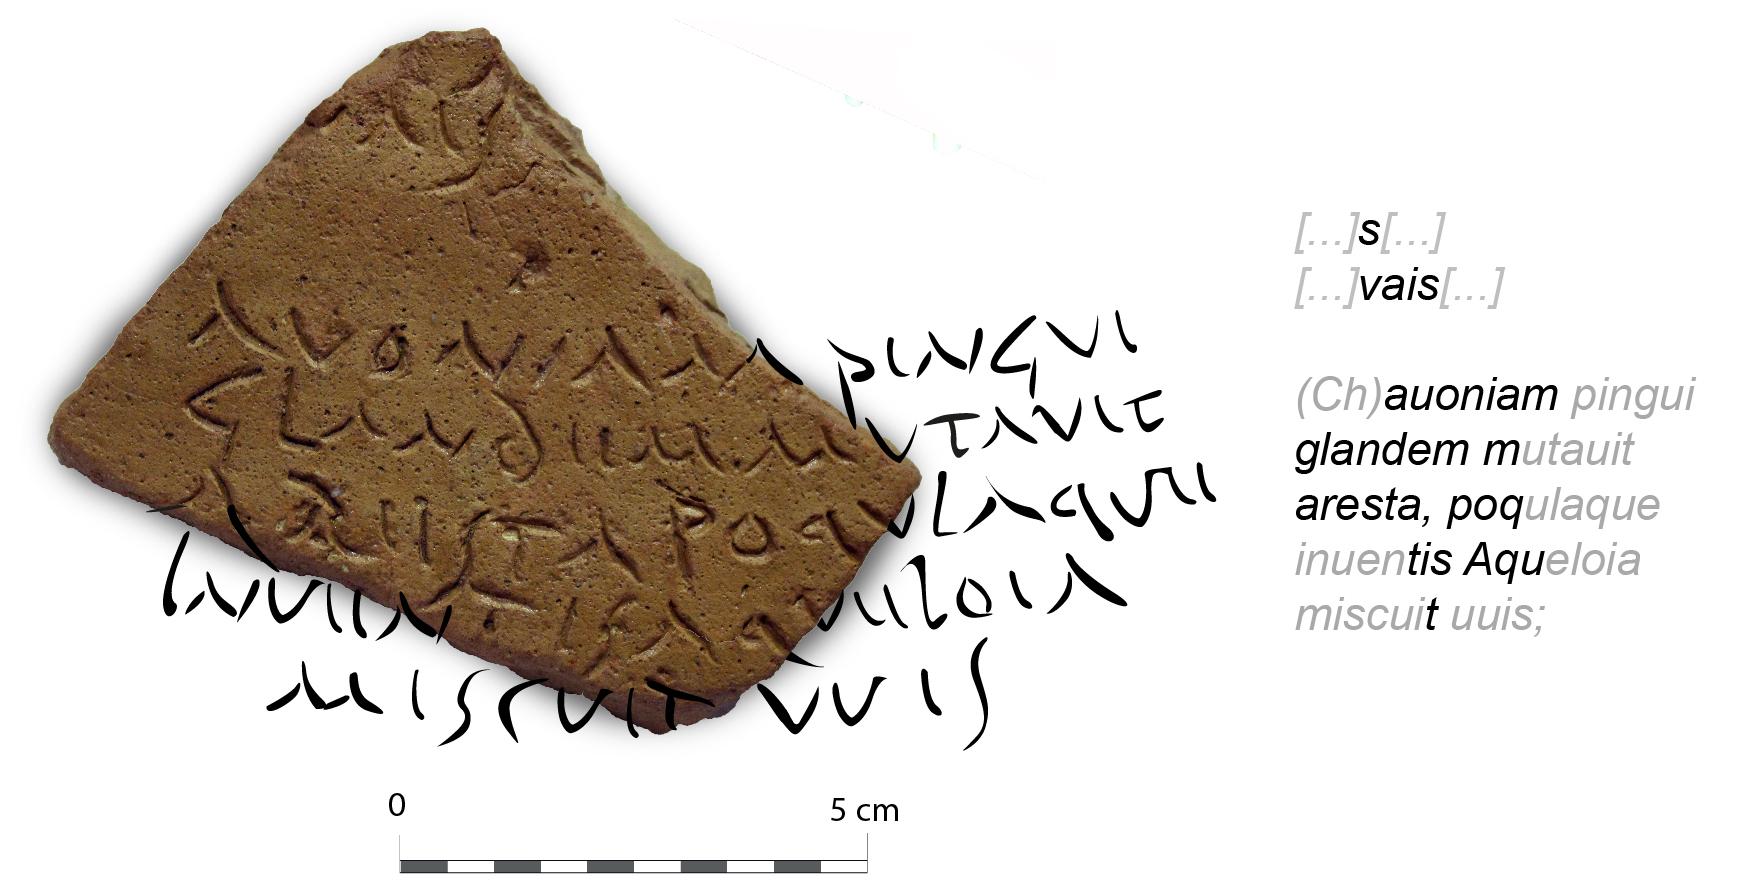 [...]s[...]
[...]vais[...]
(Ch)auoniam pingui
glandem mutauit
aresta, poqulaque
inuentis Aqueloia
miscuit uuis;
AVONIAM PINGVI
GLANDEM MVTAVIT
ARESTA POQVLAQVE
INVENTIS AQVELOIA
MISCVIT VVIS
0 5 cm